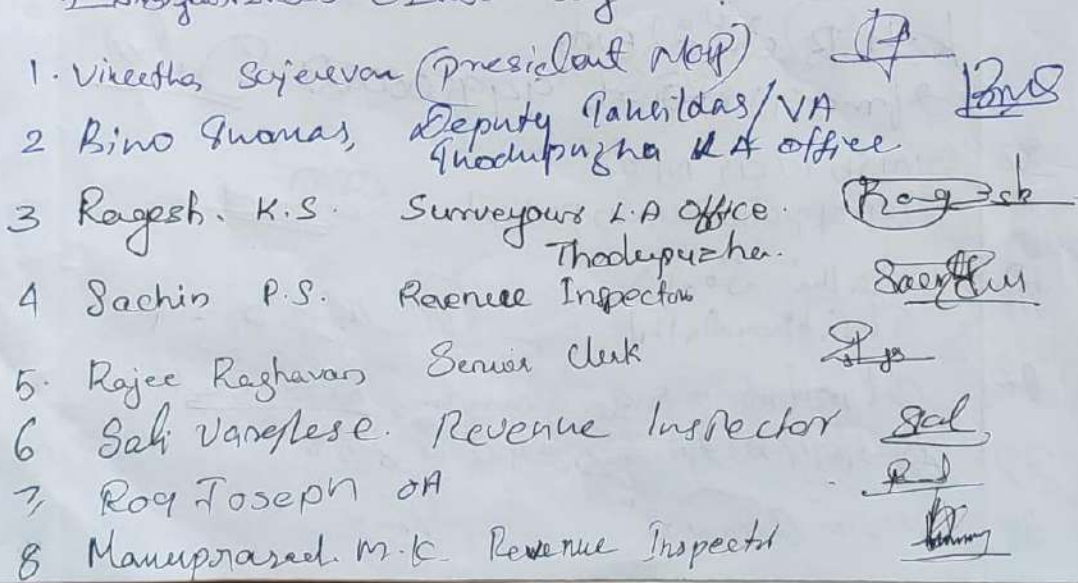 1. Vineetha Sajeevan (President MGP)
2 Bino Thomas, Deputy Tahsildar/VA
Thodupuzha LA office
3 Ragesh. K.S. Surveyour L.A Office. Ragesh
Thodupuzha.
4 Sachin P.S. Revenue Inspector
5. Rajee Raghavan Senior Clerk
6 Sali Varghese. Revenue Inspector Sal
7, Roy Joseph OA
8 Manuprasad. M.K. Revenue Inspector